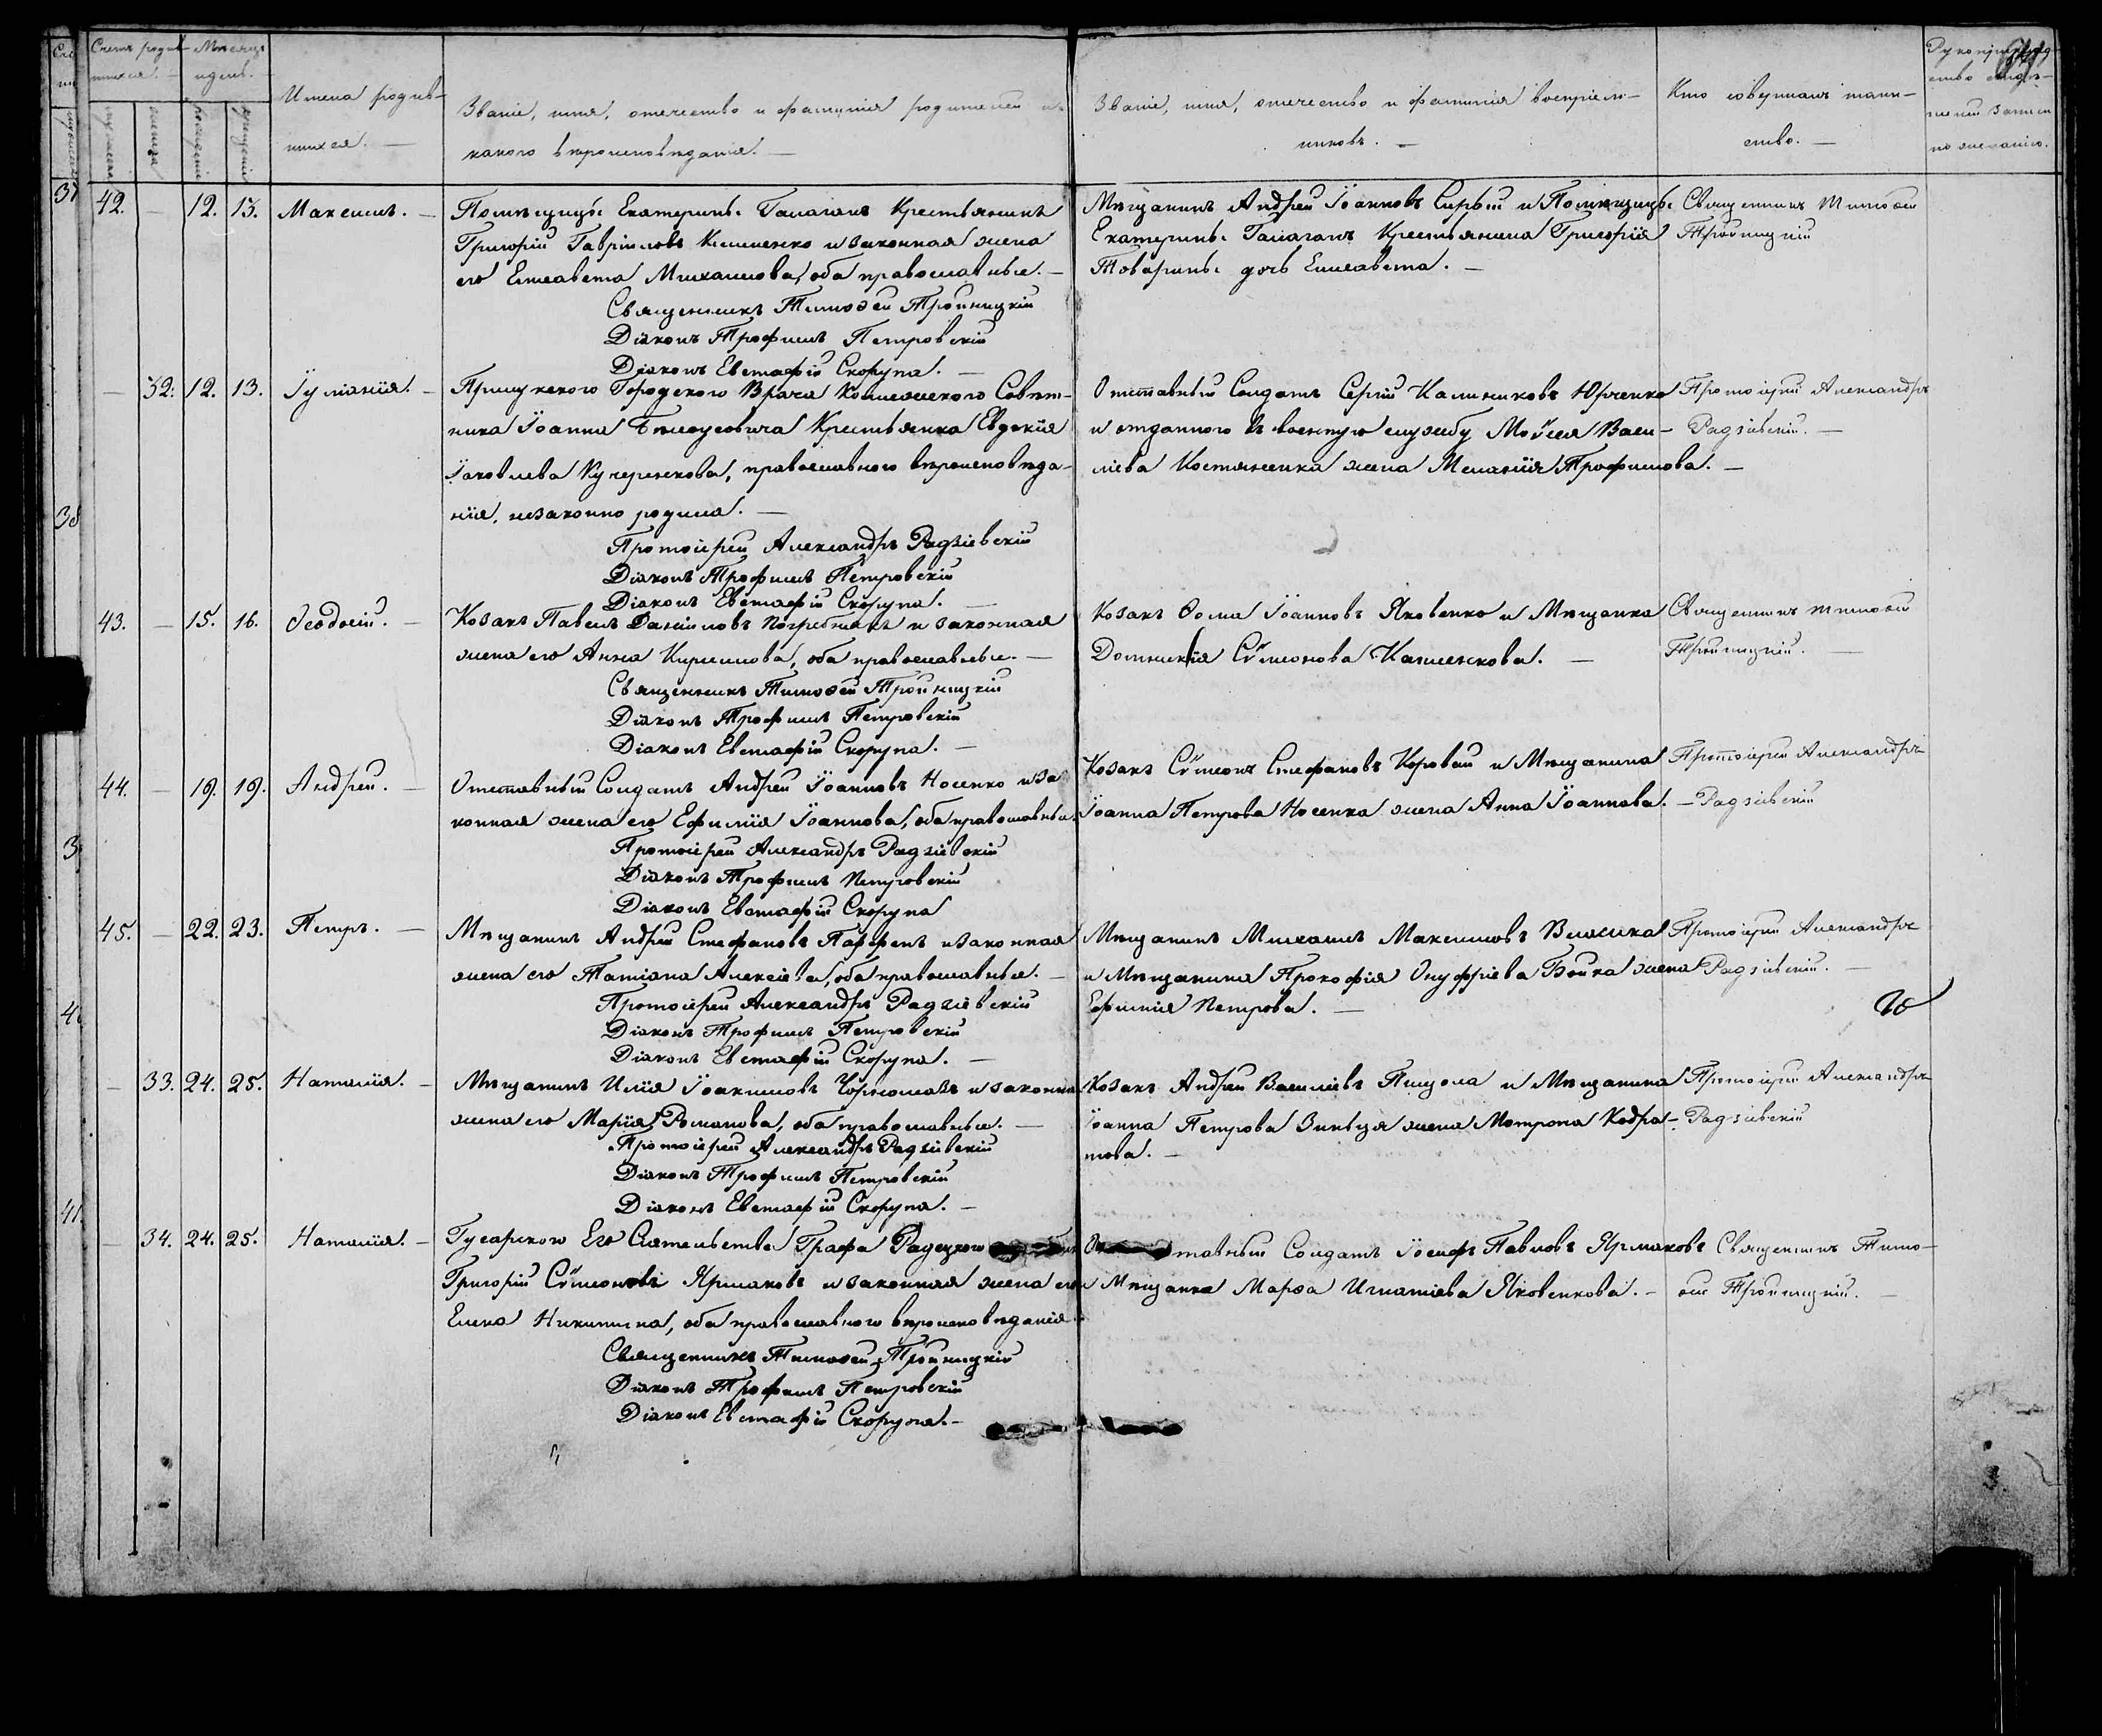 Счетъ родив- Мѣсяцъ
шихся. и день.
Имена родив-
шихся. —
Званіе, имя, отечество и фамилія родителей и
какого вѣроисповѣданія. —
Званіе, имя, отечество и фамилія воспріем-
никовъ. —
Кто совершалъ таин-
ство. —
по желанію.
37
42. — 12. 13. Максимъ. —
Помѣщицы Екатерины Галаганъ Крестьянинъ
Григорій Гавріиловъ Клименко и законная жена
его Елисавета Михаилова, оба православные. —
Священникъ Тимоѳей Тройницкій
Діаконъ Трофимъ Петровскій
Діаконъ Евстафій Скорупа. —
Мѣщанинъ Андрей Іоанновъ Сирый и Помѣщицы
Екатерины Галаганъ Крестьянина Григорія
Товарины дочь Елисавета. —
Священникъ Тимоѳей
Тройницкій
— 32. 12. 13. Іуліанія. —
Прилукского Городского Врача Коллежского Совѣт-
ника Іоанна Бѣлоусовича Крестьянка Евдокія
Іаковлева Кучеренкова, православного вѣроисповѣда-
нія, незаконно родила. —
Протоіерей Александръ Радзіевскій
Діаконъ Трофимъ Петровскій
Діаконъ Евстафій Скорупа. —
Отставный Солдатъ Сергій Калиниковъ Юрченко
и отданного въ военную службу Моѵсея Васи-
ліева Костюченка жена Меланія Трофимова. —
Протоіерей Александръ
Радзіевскій. —
38
43. — 15. 16. Ѳеодосій. —
Козакъ Павелъ Даніиловъ Погребнякъ и законная
жена его Анна Кириллова, оба православные. —
Священникъ Тимоѳей Тройницкій
Діаконъ Трофимъ Петровскій
Діаконъ Евстафій Скорупа. —
Козакъ Ѳома Іоанновъ Яковенко и Мѣщанка
Домникія Сѵмеонова Калиенкова. —
Священникъ Тимоѳей
Тройницкій. —
44. — 19. 19. Андрей. —
Отставный Солдатъ Андрей Іоанновъ Носенко и за-
конная жена его Ефимія Іоаннова, оба православные.
Протоіерей Александръ Радзіевскій
Діаконъ Трофимъ Петровскій
Діаконъ Евстафій Скорупа
Козакъ Сѵмеонъ Стефановъ Коровай и Мѣщанина
Іоанна Петрова Носенка жена Анна Іоаннова. —
Протоіерей Александръ
Радзіевскій
45. — 22. 23. Петръ. —
Мѣщанинъ Андрей Стефановъ Паффенъ и законная
жена его Татіана Алексіева, оба православные. —
Протоіерей Александръ Радзіевскій
Діаконъ Трофимъ Петровскій
Діаконъ Евстафій Скорупа. —
Мѣщанинъ Михаилъ Максимовъ Власика
и Мѣщанина Прокофія Онуффріева Бойка жена
Ефимія Петрова. —
Протоіерей Александръ
Радзіевскій. —
— 33. 24. 25. Наталія. —
Мѣщанинъ Илія Іоакимовъ Чорномазъ и законная
жена его Марія Романова, оба православные. —
Протоіерей Александръ Радзіевскій
Діаконъ Трофимъ Петровскій
Діаконъ Евстафій Скорупа. —
Козакъ Андрей Василіевъ Пищола и Мѣщанина
Іоанна Петрова Зинвця жена Мотрона Кодра-
това. —
Протоіерей Александръ
Радзіевскій
41.
— 34. 24. 25. Наталія. —
Гусарского Его Сіятельства Графа Радецкого
Григорій Сѵмеоновъ Ярмаковъ и законная жена его
Елена Никитина, оба православного вѣроисповѣданія.
Священникъ Тимоѳей Тройницкій
Діаконъ Трофимъ Петровскій
Діаконъ Евстафій Скорупа. —
Отставный Солдатъ Іосифъ Павловъ Ярмаковъ
и Мѣщанка Марѳа Игнатіева Яковенкова. —
Священникъ Тимо-
ѳей Тройницкій. —